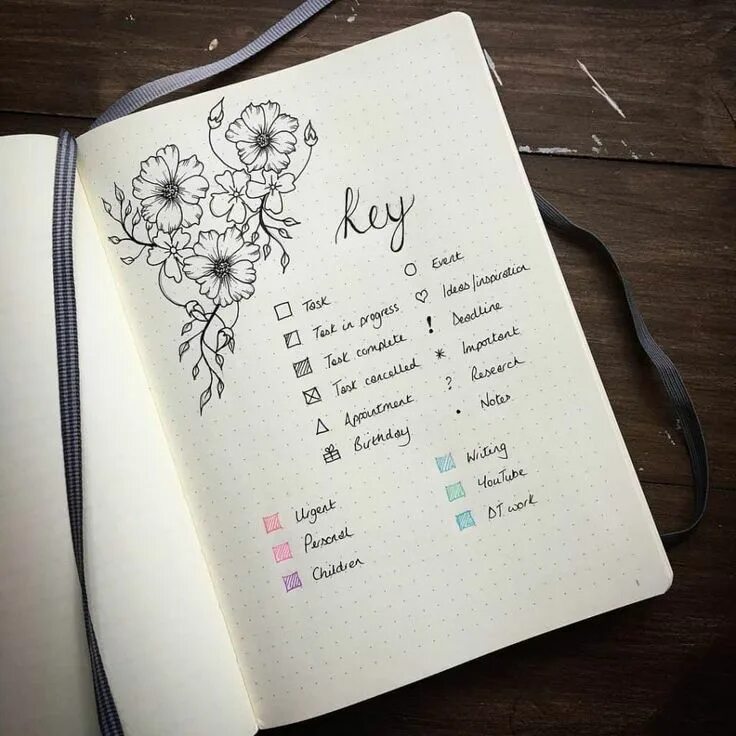 Key
Task
Task in progress
Task complete
Task cancelled
Appointment
Birthday
Event
Ideas/inspiration
! Deadline
* Important
? Research
• Notes
Urgent
Personal
Children
Writing
YouTube
DT work
1